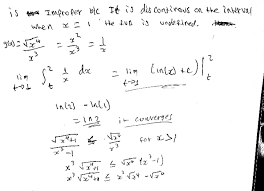 is Improper b/c It is discontinous on the interval
when x = 1 the fxn is undefined.
g(x) = √x⁴ / x³ = x² / x³ = 1/x
lim t→1 ∫ₜ² 1/x dx = lim t→1 (ln(x) + C) |ₜ²
ln(2) - ln(1)
= ln 2 it converges
√x⁴+1 / x³-1 ≤ √x⁴ / x³ for x>1
x³ √x⁴+1 ≤ √x⁴ (x³-1)
x³ √x⁴+1 ≤ x³ √x⁴ - √x⁴